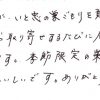 いと志の巣ごもりを
取り寄せするたびに人
す。季節限定の巣
いしいです。ありがと